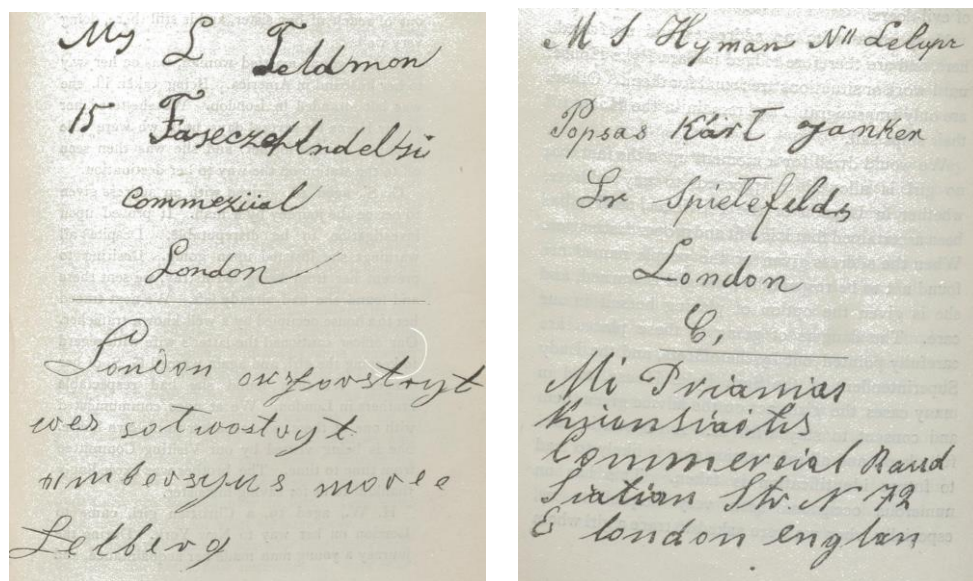 My L Feldmon
15 Faseczet Indeltsi
Commeziial
London
London oxsfoostryt
wes sotwostoyt
numbersyks movee
Lelberg
M S Hyman N11 Lelupr
Popsas Kart yanken
Lr Spietefelds
London
E,
Mi Prianias
Kzionsiaitis
Commercial Raud
Siatian Str. N 72
E london englan